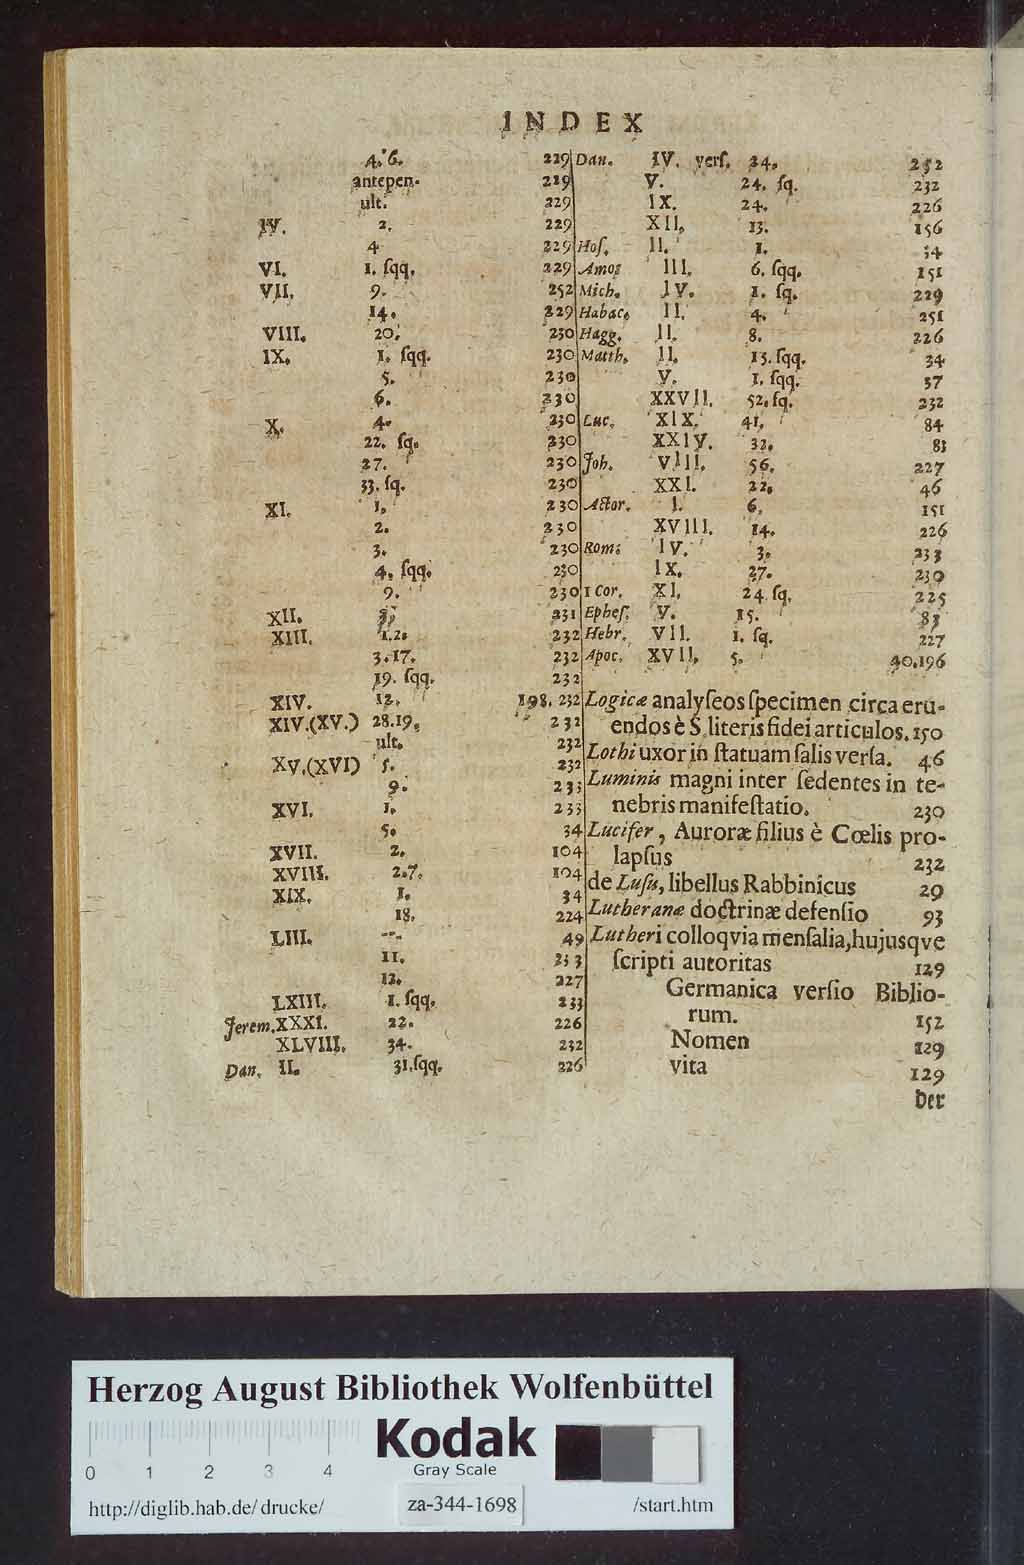 INDEX
4. 6. 229
antepen. 219
ult. 229
IV. 2. 229
4 229
VI. 1. ſqq. 229
VII. 9. 252
14. 229
VIII. 20. 230
IX. 1. ſqq. 230
5. 230
6. 230
X. 4. 230
22. ſq. 230
27. 230
33. ſq. 230
XI. 1. 230
2. 230
3. 230
4. ſqq. 230
9. 230
XII. 231
XIII. 1.2. 232
3.17. 232
19. ſqq. 232
XIV. 12. 198. 232
XIV.(XV.) 28.19. 232
ult. 232
XV.(XVI) 5. 232
9. 233
XVI. 1. 233
5. 34
XVII. 2. 104
XVIII. 2.7. 104
XIX. 1. 34
18. 224
LIII. --- 49
11. 233
12. 227
LXIII. 1. ſqq. 233
Jerem. XXXI. 22. 226
XLVIII. 34. 232
Dan. II. 31.ſqq. 226
Dan. IV. verſ. 34. 252
V. 24. ſq. 232
IX. 24. 226
XII. 13. 156
Hoſ. II. 1. 34
Amos III. 6. ſqq. 151
Mich. IV. 1. ſq. 229
Habac. II. 4. 251
Hagg. II. 8. 226
Matth. II. 15. ſqq. 34
V. 1. ſqq. 37
XXVII. 52. ſq. 232
Luc. XIX. 41. 84
XXIV. 32. 83
Joh. VIII. 56. 227
XXI. 22. 46
Actor. I. 6. 151
XVIII. 14. 226
Rom. IV. 3. 233
IX. 27. 230
1 Cor. XI. 24. ſq. 225
Epheſ. V. 15. 83
Hebr. VII. 1. ſq. 227
Apoc. XVII. 5. 40.196
Logicæ analyſeos ſpecimen circa eru-
endos è S. literis fidei articulos. 150
Lothi uxor in ſtatuam ſalis verſa. 46
Luminis magni inter ſedentes in te-
nebris manifeſtatio. 230
Lucifer, Auroræ filius è Cœlis pro-
lapſus 232
de Luſu, libellus Rabbinicus 29
Lutheranæ doctrinæ defenſio 93
Lutheri colloqvia menſalia, hujusqve
ſcripti autoritas 129
Germanica verſio Biblio-
rum. 152
Nomen 129
vita 129
der
Herzog August Bibliothek Wolfenbüttel
Kodak
Gray Scale
0 1 2 3 4
http://diglib.hab.de/drucke/ za-344-1698 /start.htm